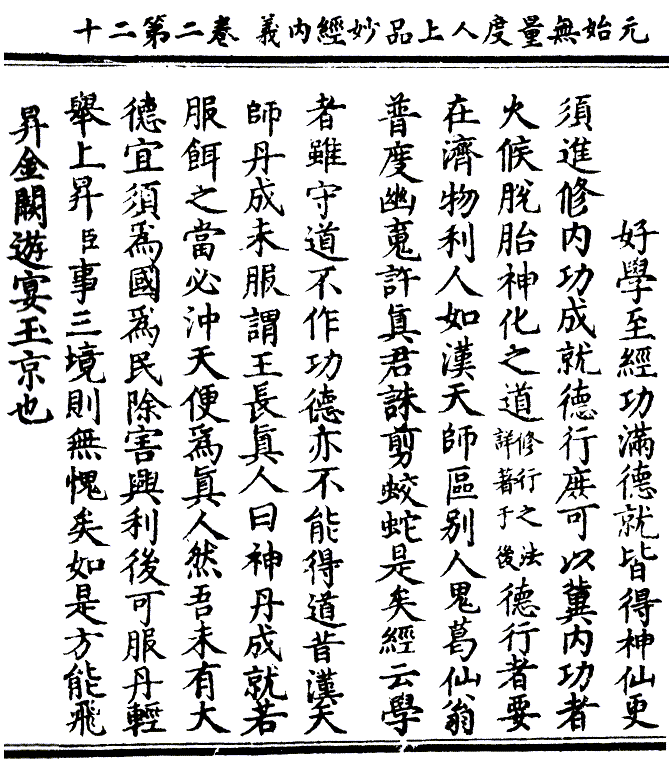 元始無量度人上品妙經內義 卷二第二十
好學至經功滿德就皆得神仙更
須進修內功成就德行庶可以冀內功者
火候脫胎神化之道修行之法詳著于後德行者要
在濟物利人如漢天師區別人鬼葛仙翁
普度幽䰟許眞君誅剪蛟蛇是矣經云學
者雖守道不作功德亦不能得道昔漢天
師丹成未服謂王長眞人曰神丹成就若
服餌之當必沖天便為眞人然吾未有大
德宜須爲國爲民除害興利後可服丹輕
舉上昇臣事三境則無愧矣如是方能飛
昇金闕遊宴玉京也